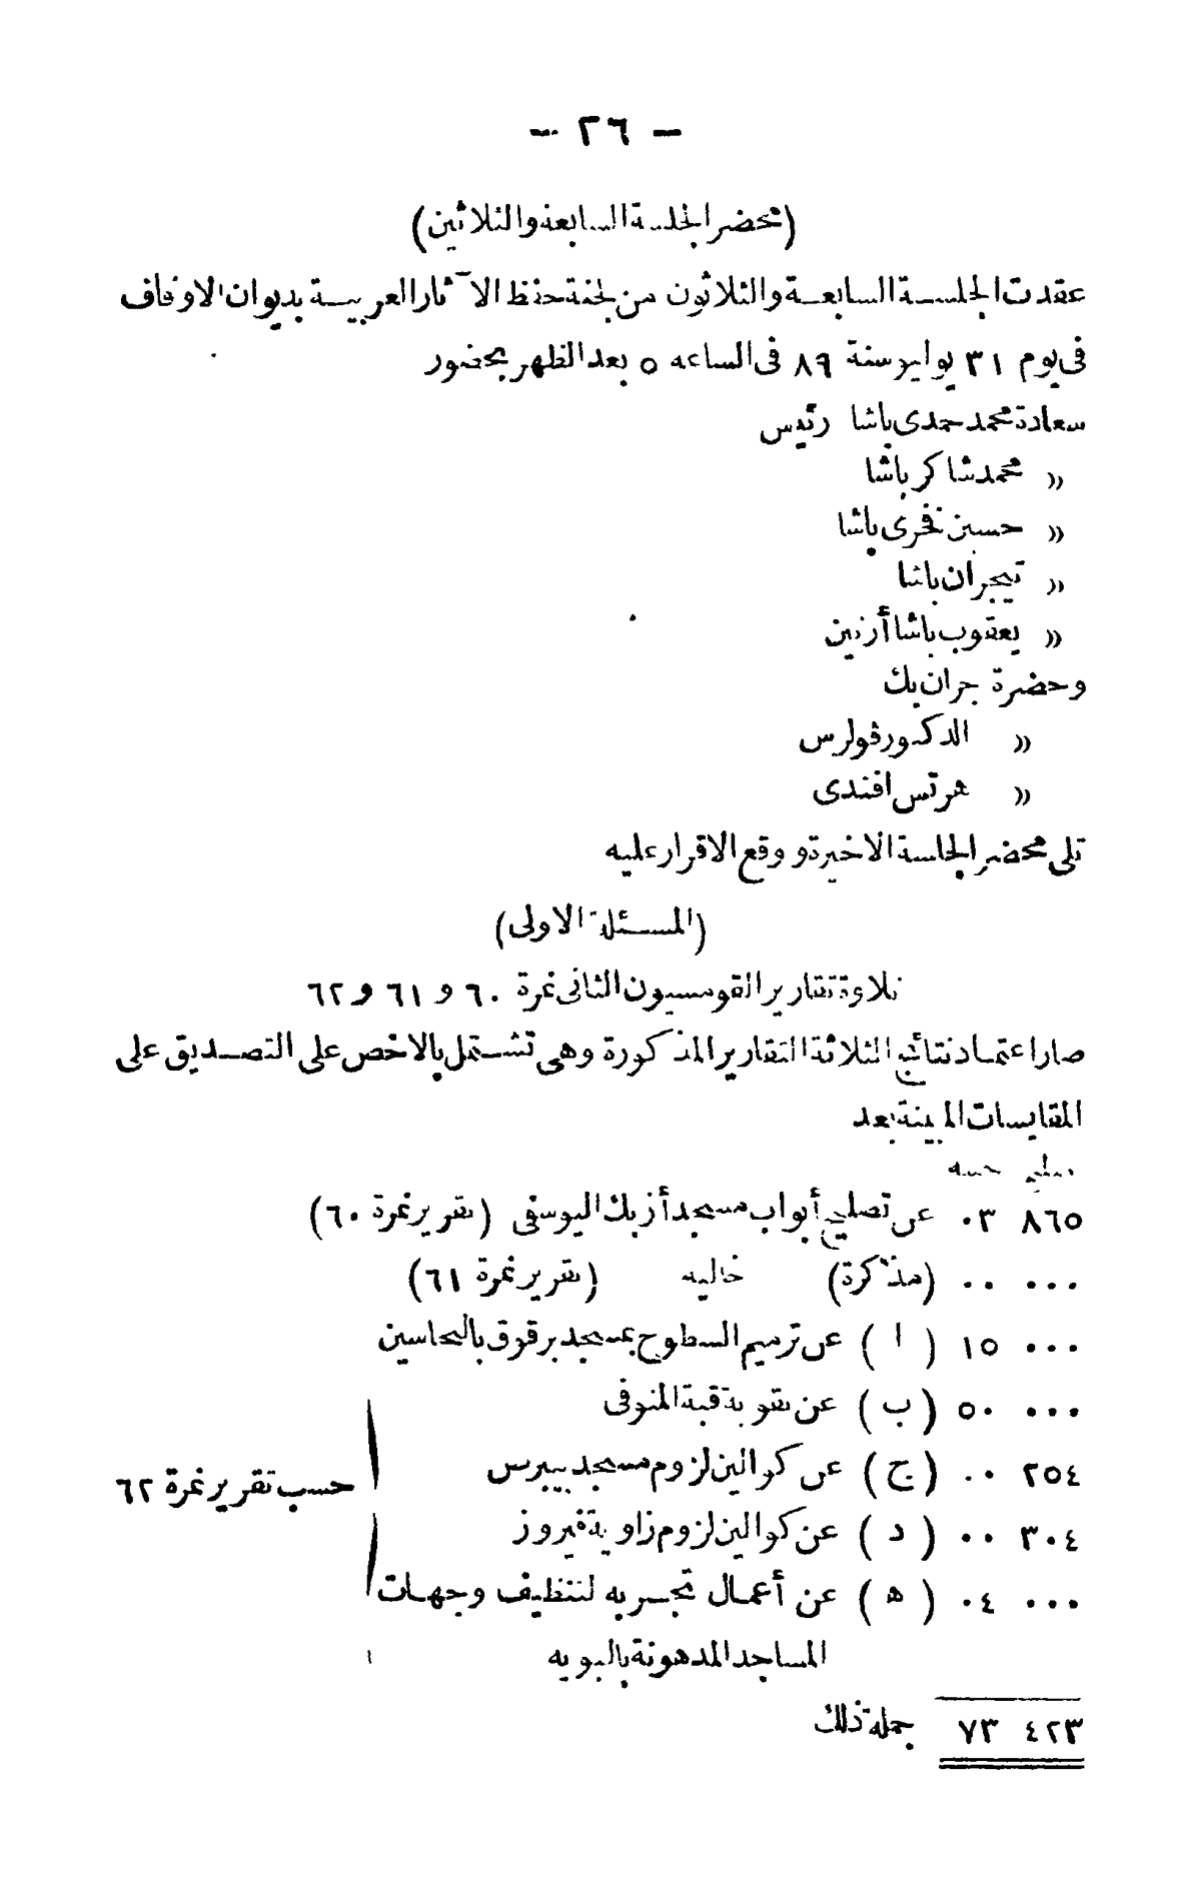 — ٢٦ —
(محضر الجلسة السابعة والثلاثين)
عقدت الجلسة السابعة والثلاثون من لجنة حفظ الآثار العربية بديوان الاوقاف
فى يوم ٣١ يوليو سنة ٨٩ فى الساعه ٥ بعد الظهر بحضور
سعادة محمد حمدى باشا رئيس
« محمد شاكر باشا
« حسين فخرى باشا
« تيجران باشا
« يعقوب باشا أرتين
وحضرة جران بك
« الدكتور ڤولرس
« هرتس افندى
تلى محضر الجلسة الاخيرة ووقع الاقرار عليه
(المسئلة الاولى)
تلاوة تقارير القومسيون الثانى نمرة ٦٠ و ٦١ و ٦٢
صار اعتماد نتائج الثلاثة التقارير المذكورة وهى تشتمل بالاخص على التصديق على
المقايسات المبينة بعد
مليم جنيه
٨٦٥ ٠٣ عن تصليح أبواب مسجد أزبك اليوسفى (تقرير نمرة ٦٠)
٠٠٠ ٠٠ (مذكرة) خاليه (تقرير نمرة ٦١)
٠٠٠ ١٥ (ا) عن ترميم السطوح بمسجد برقوق بالنحاسين
٠٠٠ ٥٠ (ب) عن تقوية قبة المنوفى
٢٥٤ ٠٠ (ج) عن كوالين لزوم مسجد بيبرس
حسب تقرير نمرة ٦٢
٣٠٤ ٠٠ (د) عن كوالين لزوم زاوية فيروز
٠٠٠ ٠٤ (ه) عن أعمال تجربه لتنظيف وجهات
المساجد المدهونة بالبويه
٤٢٣ ٧٣ جملة ذلك